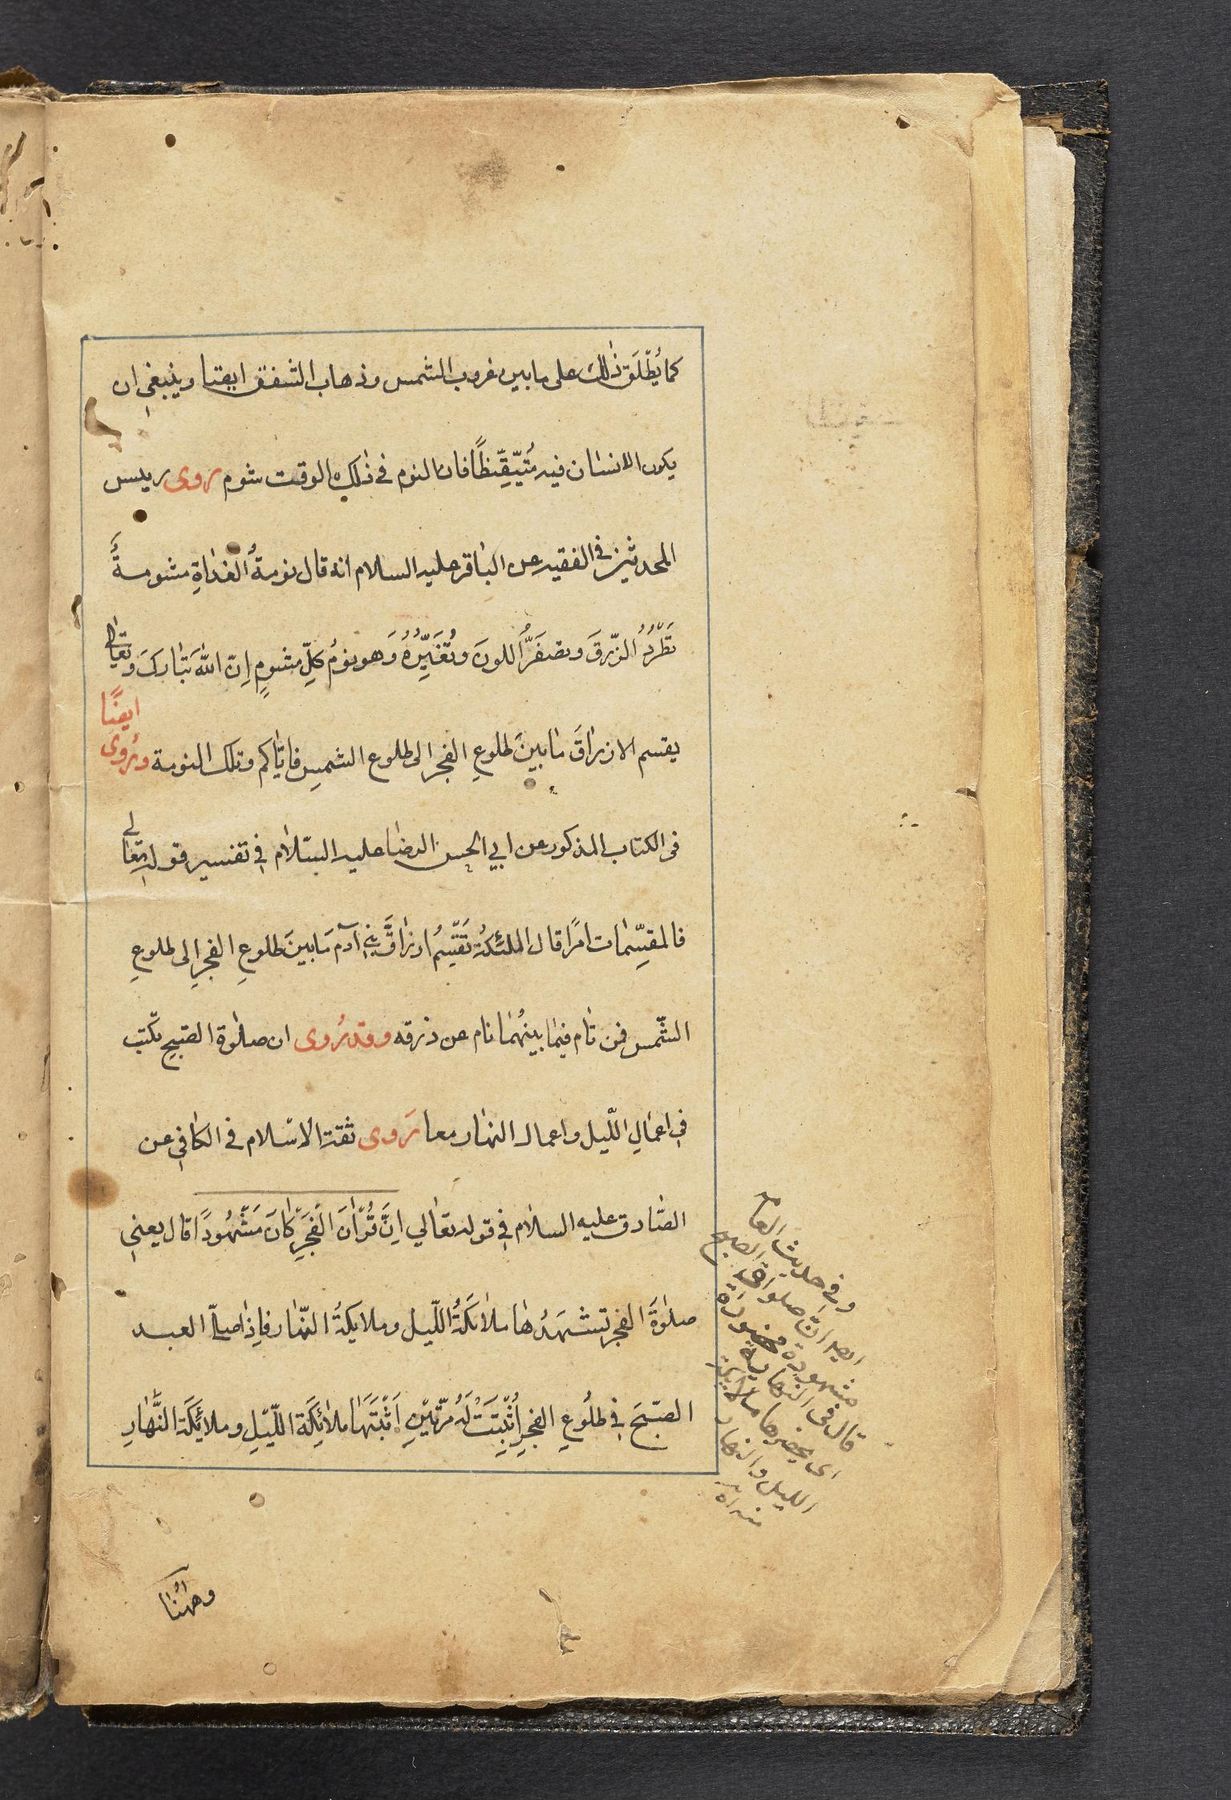 كما يُطْلَق ذٰلك على ما بين غروب الشمس وذهاب الشفق ايضا وينبغي ان
يكون الانسان فيه مُتَيَقِّظًا فان النوم في ذلك الوقت شوم روى رييس
المحدثين في الفقيه عن الباقر عليه السلام انه قال نومةُ الغداةِ مشومةٌ
تَطْرُدُ الرّزقَ وتصفَرُّ اللونَ وتُغَيِّرُهُ وَهو نومُ كلِّ مشومٍ اِنّ اللّٰه تَبَٰارَكَ وتعالى
يقسم الارزٰاقَ مٰا بينَ طلوعِ الفجر الى طلوع الشمسِ فايّٰاكم وتلك النومة ورُوىَ ايضًا
فى الكتاب المذكور عن ابي الحسن الرضٰا عليه السّلٰام في تفسير قوله تعٰالى
فالمقسِّمٰات امرًا قال الملٰئكةُ تُقَسِّمُ ارزٰاقَ بني آدم مَا بينَ طلوعِ الفجرِ الى طلوعِ
الشّمس فمن نٰام فيمٰا بينهُمٰا نام عن رزقه وقد رُوى ان صلٰوة الصّبح تكتب
في اعمٰالِ اللّيل واعمال النهٰار معا رَوى ثقة الاسْلام فى الكٰافي عن
الصّٰادق عليه السلٰام في قوله تعٰالي اِنَّ قُرْاٰنَ الْفَجْرِ كٰانَ مَشْهُودًا قال يعني
صلٰوةَ الفجر تشهَدُهٰا ملٰائكةُ اللّيل وملايكةُ النّهٰار فاِذٰا صلّى العبد
الصّبحَ في طلُوعِ الفجرِ اُثْبِتَتْ لَهُ مرّتَيْنِ اَثْبَتَهٰا ملٰائِكَة اللّيْلِ وملائِكَة النَّهٰارِ
وفي حديث العامة
ايضا ان صلوة الصبح
مشهودة محضورة
قال فى النهاية
اى يحضرها ملائكة
الليل والنهار
منه
وههُنٰا